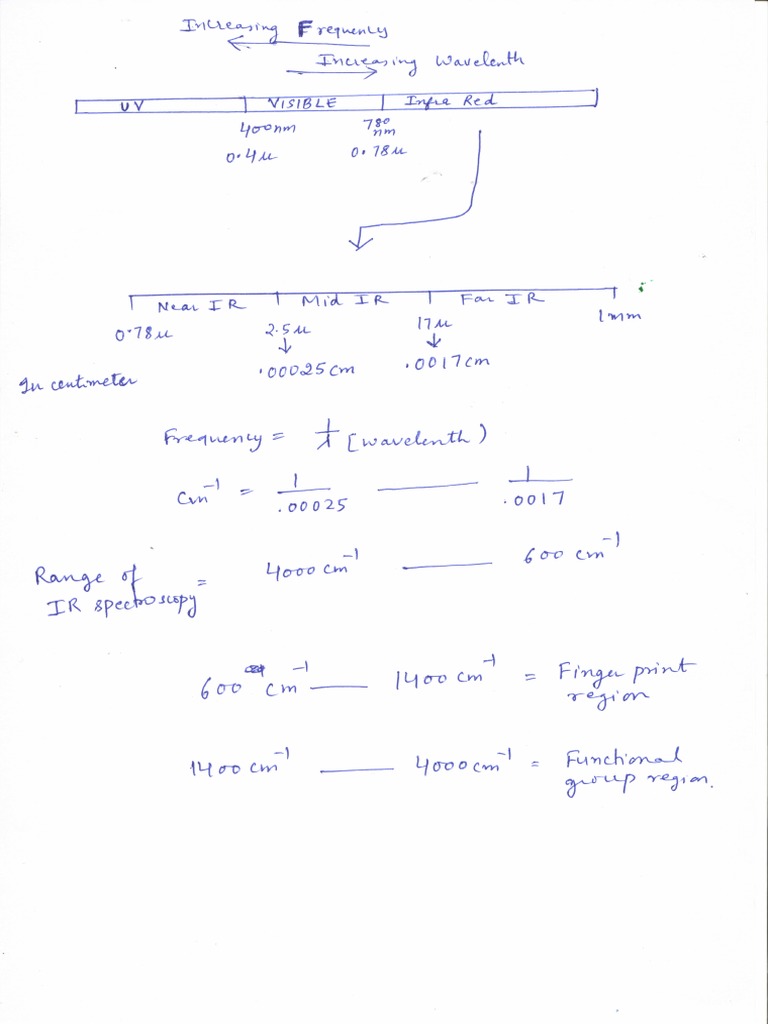 Increasing Frequency
Increasing Wavelenth
UV VISIBLE Infra Red
400nm 780 nm
0.4µ 0.78µ
Near IR Mid IR Far IR
0.78µ 2.5µ 17µ 1mm
.00025cm .0017cm
In centimeter
Frequency = 1/λ [wavelenth)
Cm⁻¹ = 1/.00025 — 1/.0017
Range of IR spectroscopy = 4000 cm⁻¹ — 600 cm⁻¹
600 cm⁻¹ — 1400 cm⁻¹ = Finger print region
1400 cm⁻¹ — 4000 cm⁻¹ = Functional group region.